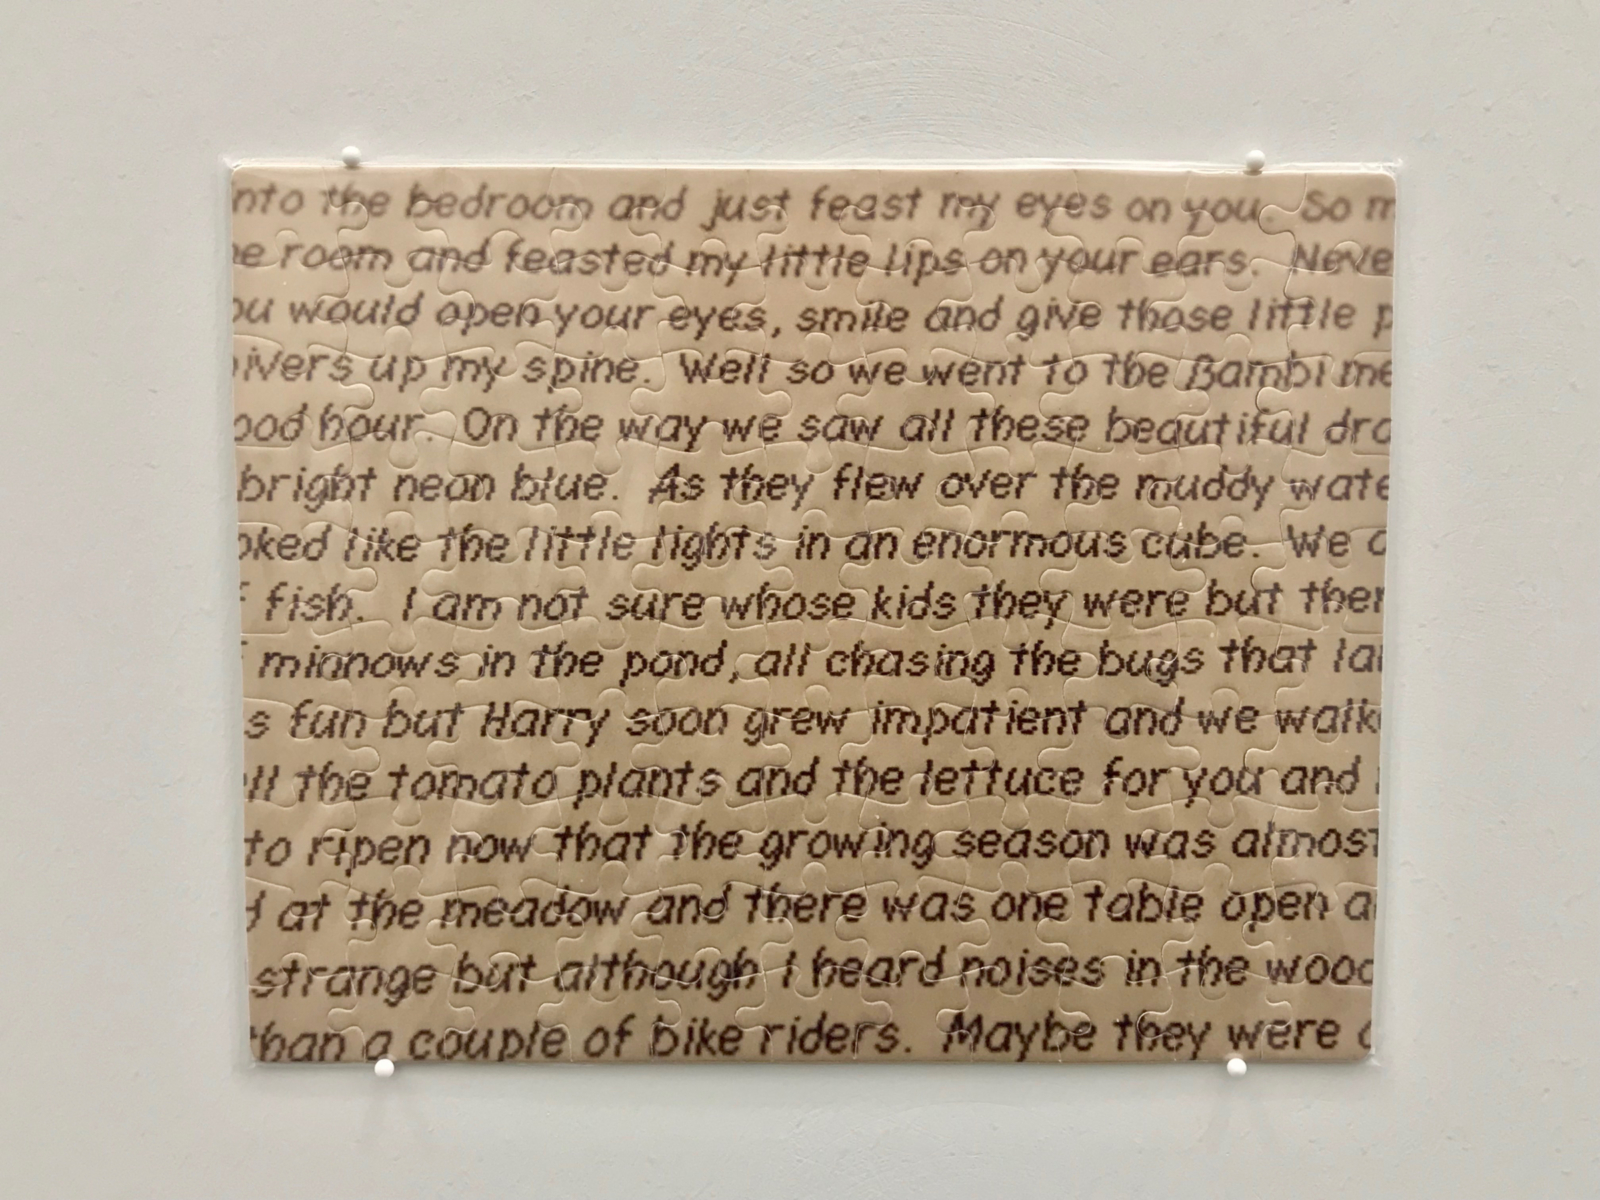 into the bedroom and just feast my eyes on you. So m
e room and feasted my little lips on your ears. Neve
ou would open your eyes, smile and give those little p
ivers up my spine. Well so we went to the Bambi me
ood hour. On the way we saw all these beautiful dra
bright neon blue. As they flew over the muddy wate
oked like the little lights in an enormous cube. We
f fish. I am not sure whose kids they were but ther
f minnows in the pond, all chasing the bugs that la
s fun but Harry soon grew impatient and we walk
ll the tomato plants and the lettuce for you and
to ripen now that the growing season was almost
d at the meadow and there was one table open a
strange but although I heard noises in the wood
than a couple of bike riders. Maybe they were